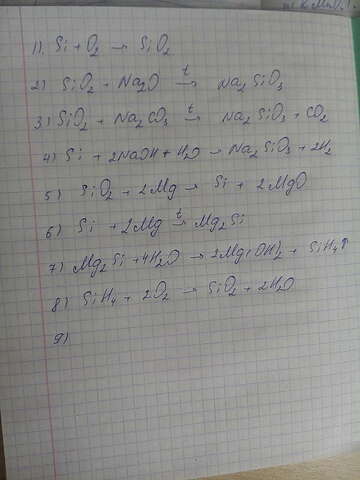 1). Si + O₂ → SiO₂
2) SiO₂ + Na₂O →ᵗ Na₂SiO₃
3) SiO₂ + Na₂CO₃ →ᵗ Na₂SiO₃ + CO₂
4) Si + 2NaOH + H₂O → Na₂SiO₃ + 2H₂
5) SiO₂ + 2Mg → Si + 2MgO
6) Si + 2Mg →ᵗ Mg₂Si
7) Mg₂Si + 4H₂O → 2Mg(OH)₂ + SiH₄↑
8) SiH₄ + 2O₂ → SiO₂ + 2H₂O
9)